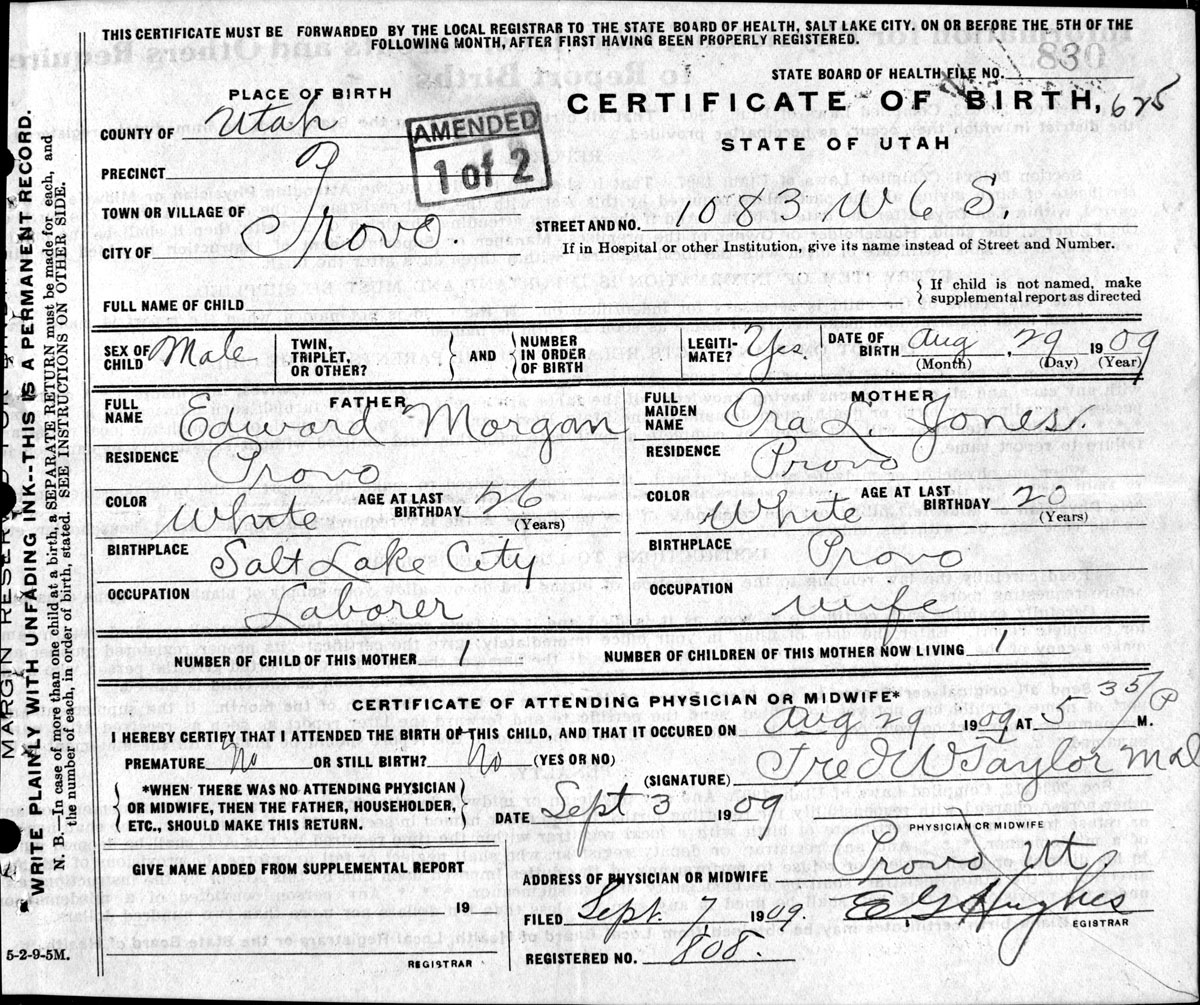 THIS CERTIFICATE MUST BE FORWARDED BY THE LOCAL REGISTRAR TO THE STATE BOARD OF HEALTH, SALT LAKE CITY, ON OR BEFORE THE 5TH OF THE
FOLLOWING MONTH, AFTER FIRST HAVING BEEN PROPERLY REGISTERED.
STATE BOARD OF HEALTH FILE NO. 830
PLACE OF BIRTH
CERTIFICATE OF BIRTH, 625
STATE OF UTAH
COUNTY OF Utah
AMENDED
1 of 2
PRECINCT
TOWN OR VILLAGE OF
STREET AND NO. 1083 W 6 S.
CITY OF Provo.
If in Hospital or other Institution, give its name instead of Street and Number.
FULL NAME OF CHILD
If child is not named, make
supplemental report as directed
SEX OF CHILD Male
TWIN, TRIPLET, OR OTHER?
AND
NUMBER IN ORDER OF BIRTH
LEGITI- MATE? Yes.
DATE OF BIRTH Aug, 29 1909
(Month) (Day) (Year)
FATHER
FULL NAME Edward Morgan
RESIDENCE Provo
COLOR White AGE AT LAST BIRTHDAY 26
(Years)
BIRTHPLACE Salt Lake City
OCCUPATION Laborer
MOTHER
FULL MAIDEN NAME L. Jones.
RESIDENCE Provo
COLOR White AGE AT LAST BIRTHDAY 20
(Years)
BIRTHPLACE Provo
OCCUPATION wife
NUMBER OF CHILD OF THIS MOTHER 1
NUMBER OF CHILDREN OF THIS MOTHER NOW LIVING 1
CERTIFICATE OF ATTENDING PHYSICIAN OR MIDWIFE*
I HEREBY CERTIFY THAT I ATTENDED THE BIRTH OF THIS CHILD, AND THAT IT OCCURED ON Aug 29 1909 AT 5 35/P M.
PREMATURE No OR STILL BIRTH? No (YES OR NO)
(SIGNATURE) Fred W Taylor
*WHEN THERE WAS NO ATTENDING PHYSICIAN
OR MIDWIFE, THEN THE FATHER, HOUSEHOLDER,
ETC., SHOULD MAKE THIS RETURN.
DATE Sept 3 1909
PHYSICIAN OR MIDWIFE
GIVE NAME ADDED FROM SUPPLEMENTAL REPORT
19
REGISTRAR
ADRESS OF PHYSICIAN OR MIDWIFE Provo Ut
FILED Sept. 7, 1909. E G Hughes
EGISTRAR
REGISTERED NO. 808.
5-2-9-5M.
MARGIN RESERV
WRITE PLAINLY WITH UNFADING INK--THIS IS A PERMANENT RECORD.
N. B.—In case of more than one child at a birth, a SEPARATE RETURN must be made for each, and
the number of each, in order of birth, stated. SEE INSTRUCTIONS ON OTHER SIDE.